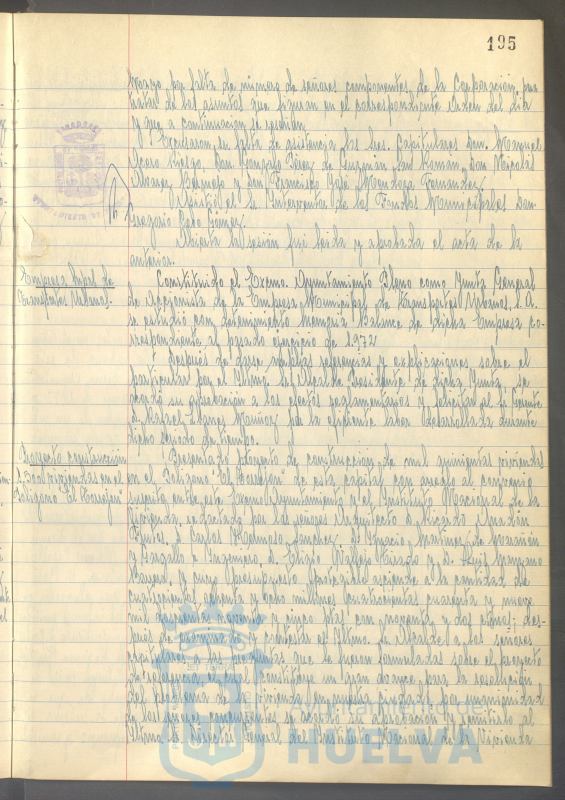 195
por falta de número de señores componentes de la Corporación, para
tratar de los asuntos que figuran en el correspondiente Orden del día
y que a continuación se reseñan.
Excusaron su falta de asistencia los Sres. Capitulares Don Manuel
Mora don Gonzalo Pérez de Guzmán San Román, don Nicolás
Álvarez y Don Francisco José Mendoza Fernández
Asistió el Sr. Interventor de los Fondos Municipales Don
Gregorio Gómez.
Abierta la sesión fue leída y aprobada el acta de la
anterior.
Empresa Mpal. de
Transportes Urbanos.
Constituido el Excmo. Ayuntamiento Pleno como Junta General
de Accionista de la Empresa Municipal de Transportes Urbanos, S.A.
se estudió con detenimiento Memoria Balance de dicha Empresa co-
rrespondiente al pasado ejercicio de 1972
Después de darse amplias referencias y explicaciones sobre el
particular por el Iltmo. Sr. Alcalde Presidente de dicha Junta, se
acordó su aprobación a los efectos reglamentarios y felicitar al Sr. Gerente
D. Rafael Muñoz por la eficiente labor desarrollada durante
dicho período de tiempo.
Proyecto construcción
1.500 viviendas en el
Polígono "El Torrejón"
Presentado proyecto de construcción de mil quinientas viviendas
en el Polígono "El Torrejón" de esta capital con arreglo al convenio
suscrito entre este Excmo. Ayuntamiento y el Instituto Nacional de la
Vivienda, redactado por los señores Arquitecto D. Ricardo
D. Carlos Hermoso Sánchez, D. Ignacio Martínez de
y e Ingeniero D. Eligio Vallejo y D. Luis Manzano
y cuyo presupuesto asciende a la cantidad de
cuatrocientos ochenta y ocho millones cuatrocientas cuarenta y nueve
mil y cinco ptas. con noventa y dos ctmos; des-
pués de y contestar el Iltmo. Sr. Alcalde a los señores
capitulares a las preguntas que le fueron formuladas sobre el proyecto
de referencia, el cual constituye un gran avance para la resolución
del problema de la vivienda en nuestra ciudad, por unanimidad
de los señores concurrentes se acordó su aprobación y remitirlo al
Iltmo. Sr. Director General del Instituto Nacional de la Vivienda
Ayuntamiento de
HUELVA